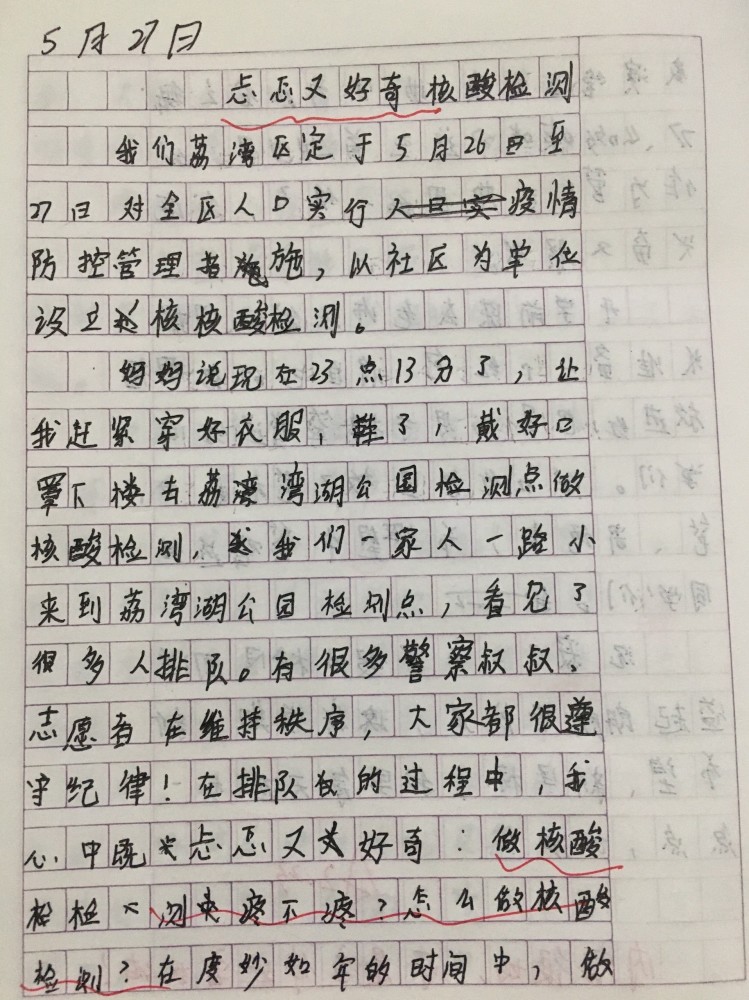 5月27日
忐忑又好奇核酸检测
我们荔湾区定于5月26日至
27日对全区人口实行疫情
防控管理措施，以社区为单位
设立核核酸检测。
妈妈说现在23点13分了，让
我赶紧穿好衣服，鞋了，戴好口
罩下楼去荔湾湾湖公园检测点做
核酸检测，我们一家人一路小
来到荔湾湖公园检测点，看见了
很多人排队。有很多警察叔叔。
志愿者在维持秩序，大家都很遵
守纪律！在排队的过程中，我
心中既忐忑又好奇：做核酸
检测疼不疼？怎么做核酸
检测？在度妙如年的时间中，做